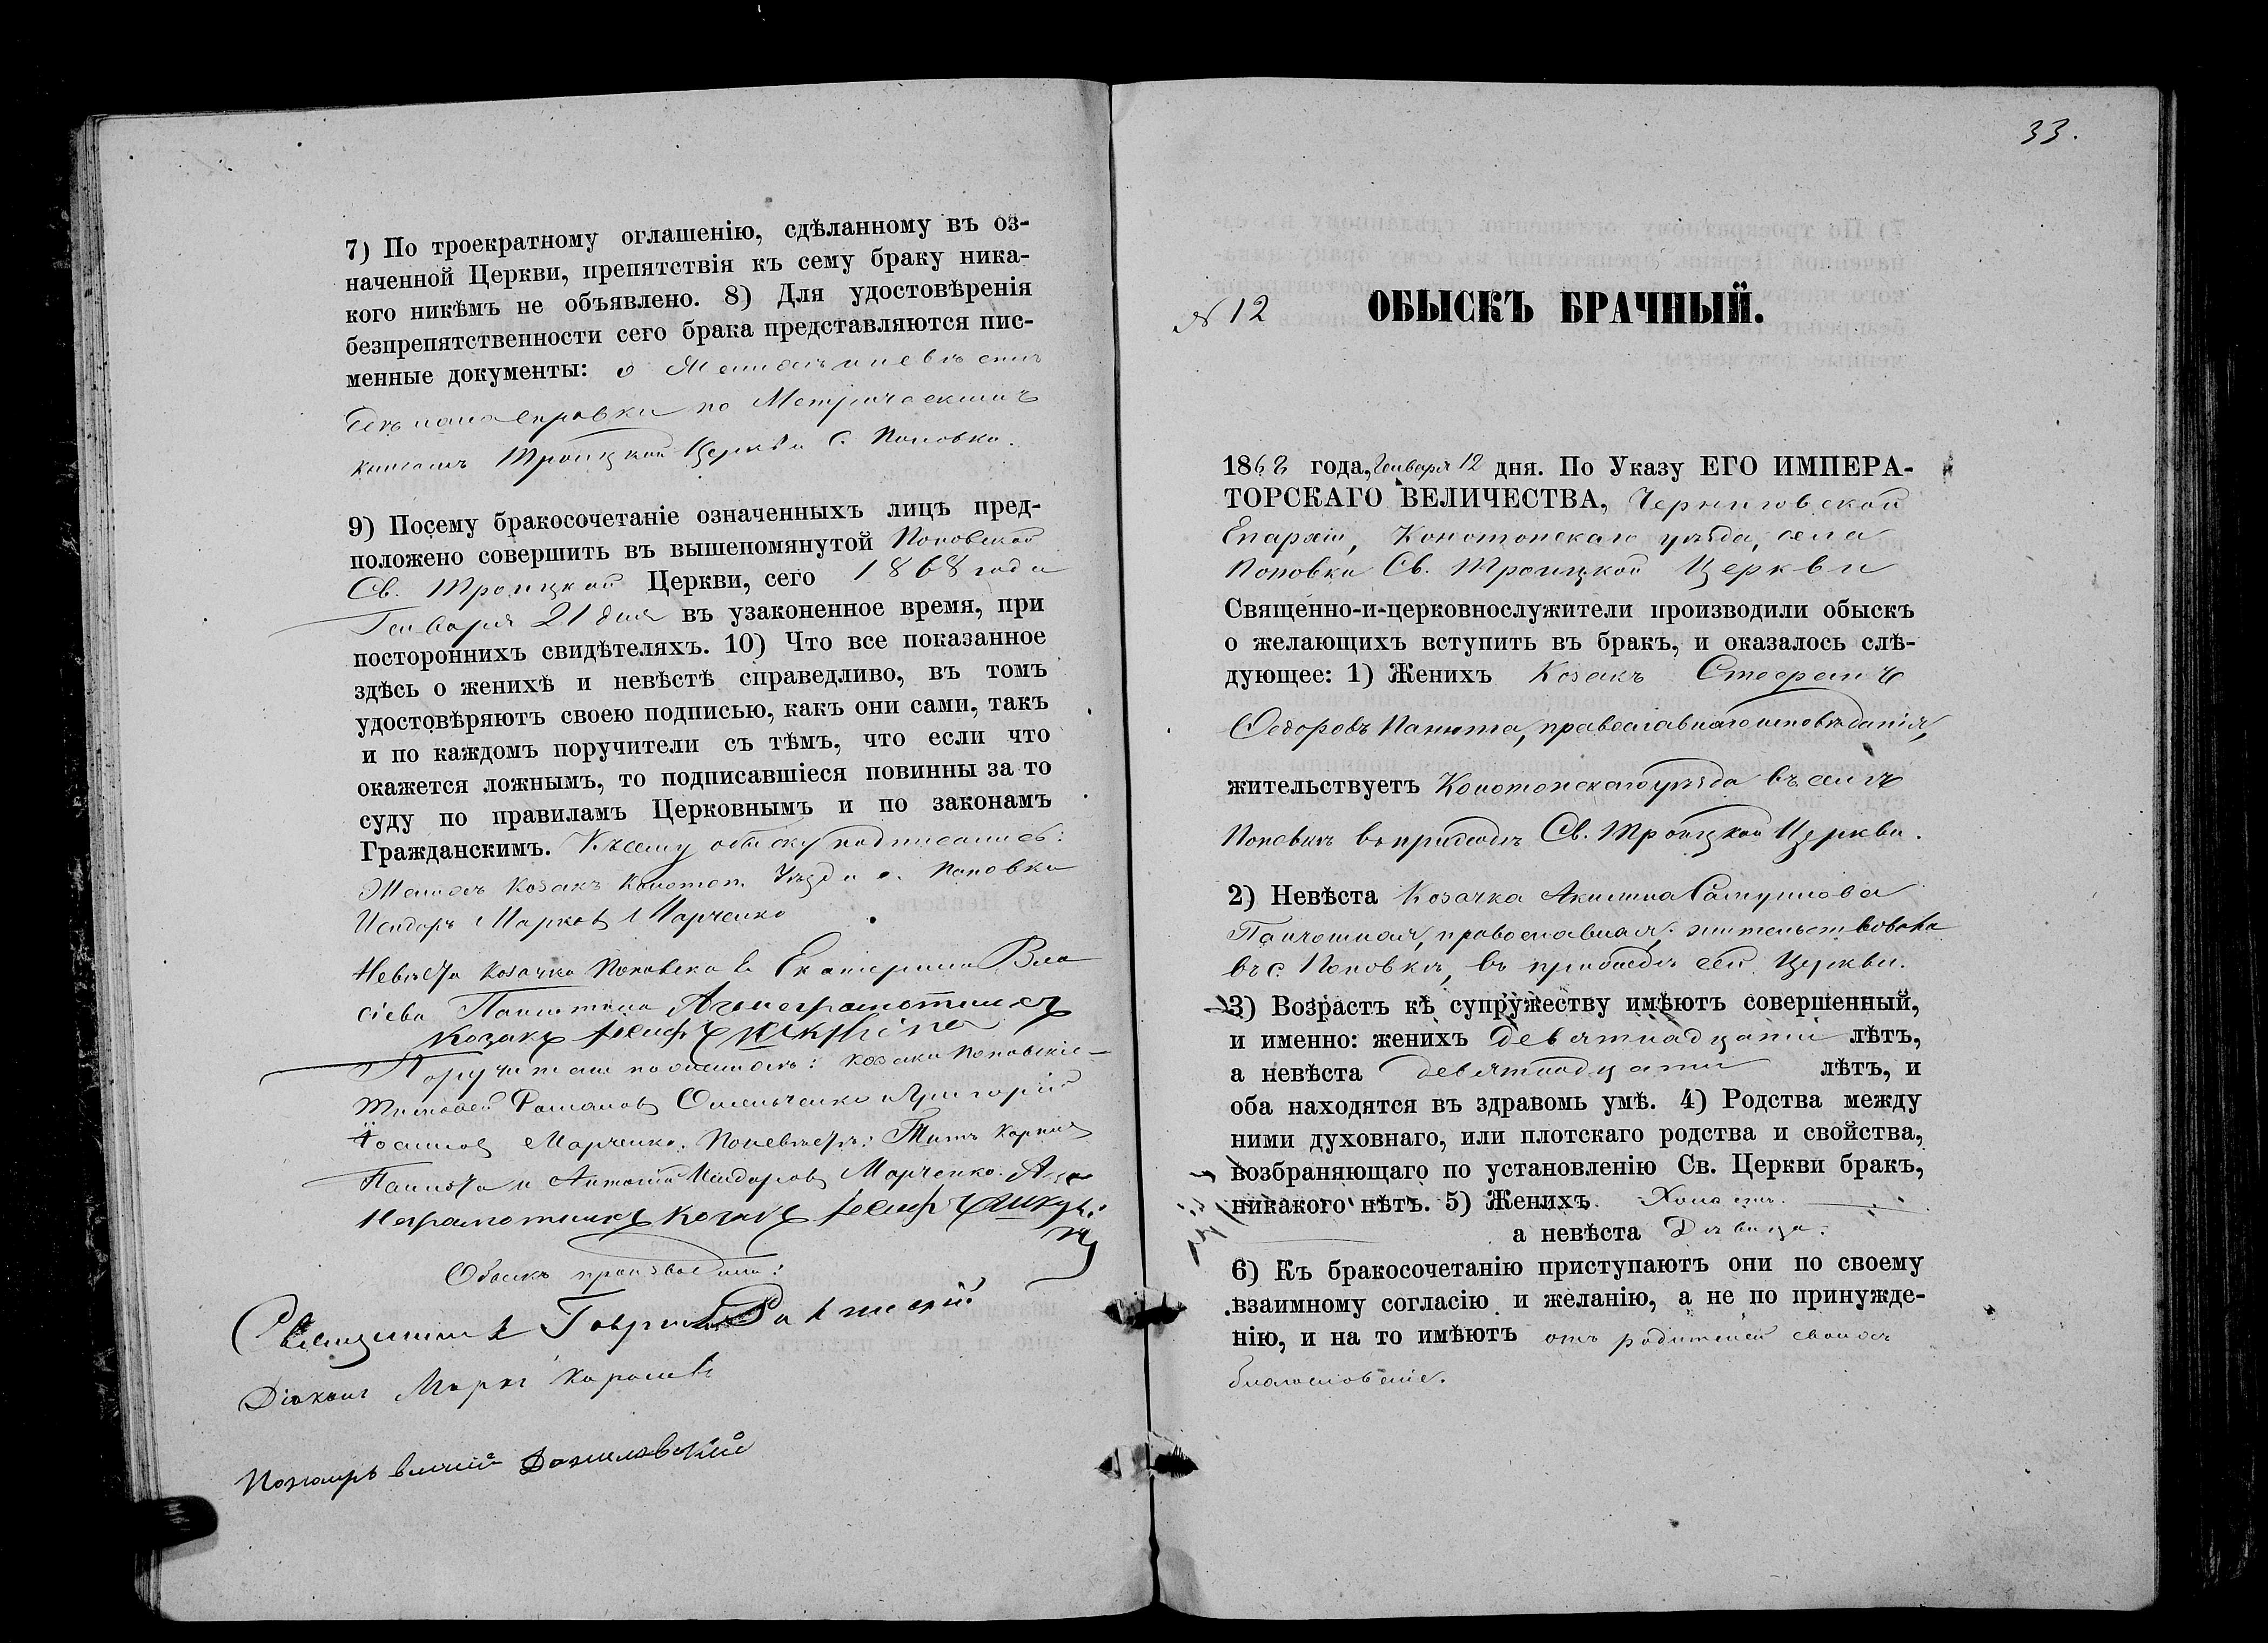 7) По троекратному оглашенію, сдѣланному въ оз-
наченной Церкви, препятствія къ сему браку ника-
кого никѣмъ не объявлено. 8) Для удостовѣренія
безпрепятственности сего брака представляются пис-
менные документы: о Женихѣ и невѣстѣ
справки по Метрическимъ
книгамъ Троицкой Церкви С. Поповки.
9) Посему бракосочетаніе означенныхъ лицъ пред-
положено совершить въ вышепомянутой Поповской
Св. Троицкой Церкви, сего 1868 года
Генваря 21 дня въ узаконенное время, при
постороннихъ свидѣтеляхъ. 10) Что все показанное
здѣсь о женихѣ и невѣстѣ справедливо, въ томъ
удостовѣряютъ своею подписью, какъ они сами, такъ
и по каждомъ поручители съ тѣмъ, что если что
окажется ложнымъ, то подписавшіеся повинны за то
суду по правиламъ Церковнымъ и по законамъ
Гражданскимъ. Къ сему обыску подписались:
Женихъ Козакъ Конотоп. Уѣзда с. Поповки
Исидоръ Марковъ Марченко
Невѣста Козачка Поповская Екатерина Вла
сіева
Козакъ Іосифъ
Поручители по женихѣ: Козаки Поповскіе
Тимофей Романовъ Омельченко и Григорій
Марченко. По невѣстѣ: Титъ
и Антоній Исидоровъ Марченко. А за
неграмотныхъ Козакъ Іосифъ
Обыскъ производили:
Священникъ Гавріилъ
Діаконъ Маркъ
Пономарь Даниловскій
33.
№ 12 ОБЫСКЪ БРАЧНЫЙ.
1868 года, Генваря 12 дня. По Указу ЕГО ИМПЕРА-
ТОРСКАГО ВЕЛИЧЕСТВА, Черниговской
Епархіи, Конотопскаго уѣзда, села
Поповки Св. Троицкой Церкви
Священно-и-церковнослужители производили обыскъ
о желающихъ вступить въ бракъ, и оказалось слѣ-
дующее: 1) Женихъ Козакъ Стефанъ
Федоровъ Панюта, православнаго исповѣданія,
жительствуетъ Конотопскаго уѣзда въ селѣ
Поповкѣ въ приходѣ Св. Троицкой Церкви.
2) Невѣста Козачка Акилина
православная, жительствовала
въ с. Поповкѣ, въ приходѣ сей Церкви.
3) Возрастъ къ супружеству имѣютъ совершенный,
и именно: женихъ девятнадцати лѣтъ,
а невѣста девятнадцати лѣтъ, и
оба находятся въ здравомъ умѣ. 4) Родства между
ними духовнаго, или плотскаго родства и свойства,
возбраняющаго по установленію Св. Церкви бракъ,
никакого нѣтъ. 5) Женихъ Холостъ.
а невѣста Дѣвица.
6) Къ бракосочетанію приступаютъ они по своему
взаимному согласію и желанію, а не по принужде-
нію, и на то имѣютъ отъ родителей своихъ
благословеніе.